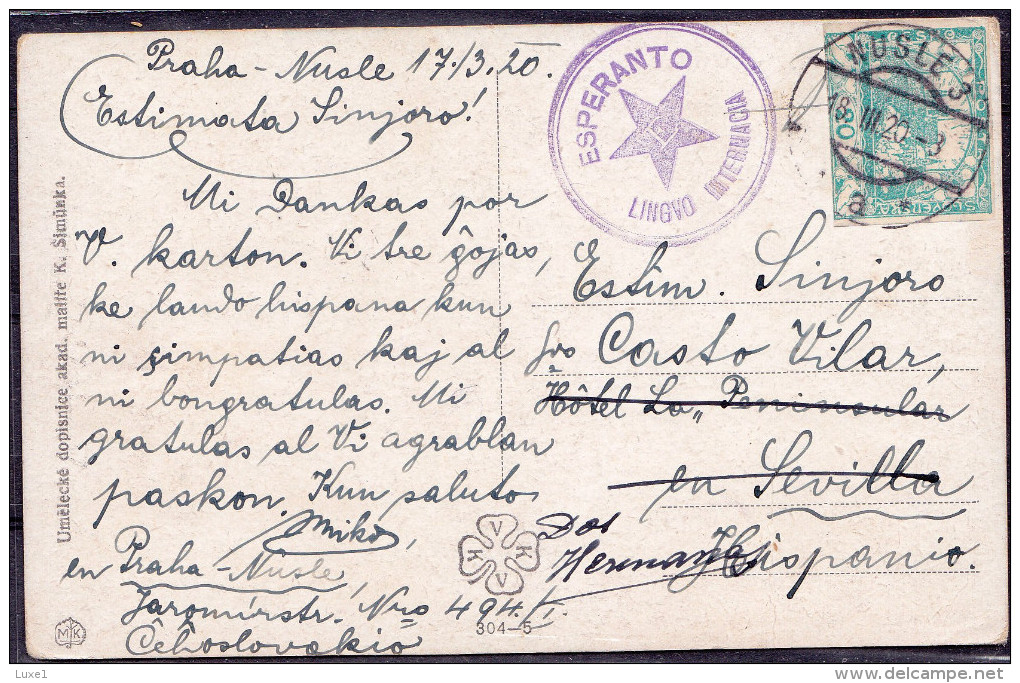 Praha - Nusle 17./3.20.
Estimata Sinjoro!
Mi Dankas por
V. karton. Vi tre ĝojas,
ke lando hispana kun
ni simpatias kaj al
ni bongratulas. Mi
gratulas al Vi agrablan
paskon. Kun saluto
Mikó,
en Praha - Nusle,
Jaromírstr. Nro 494/I
Ĉeĥoslovakio
Umělecké dopisnice akad. malíře K. Šimůnka.
MK
304-5
V K V K
ESPERANTO
LINGVO INTERNACIA
NUSLE 3
18.III.20.-8
a *
80
Estim. Sinjoro
Casto Vilar,
Hôtel La „ Peninsular
en Sevilla
Dos
Hermanas
Hispanio.
Luxe1
delcampe.net